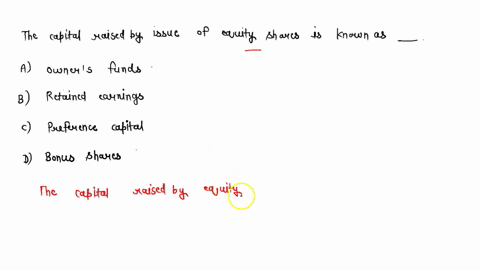 The capital raised by issue of equity shares is known as __.
A) owner's funds
B) Retained earnings
C) Preference capital
D) Bonus shares
The capital raised by equity